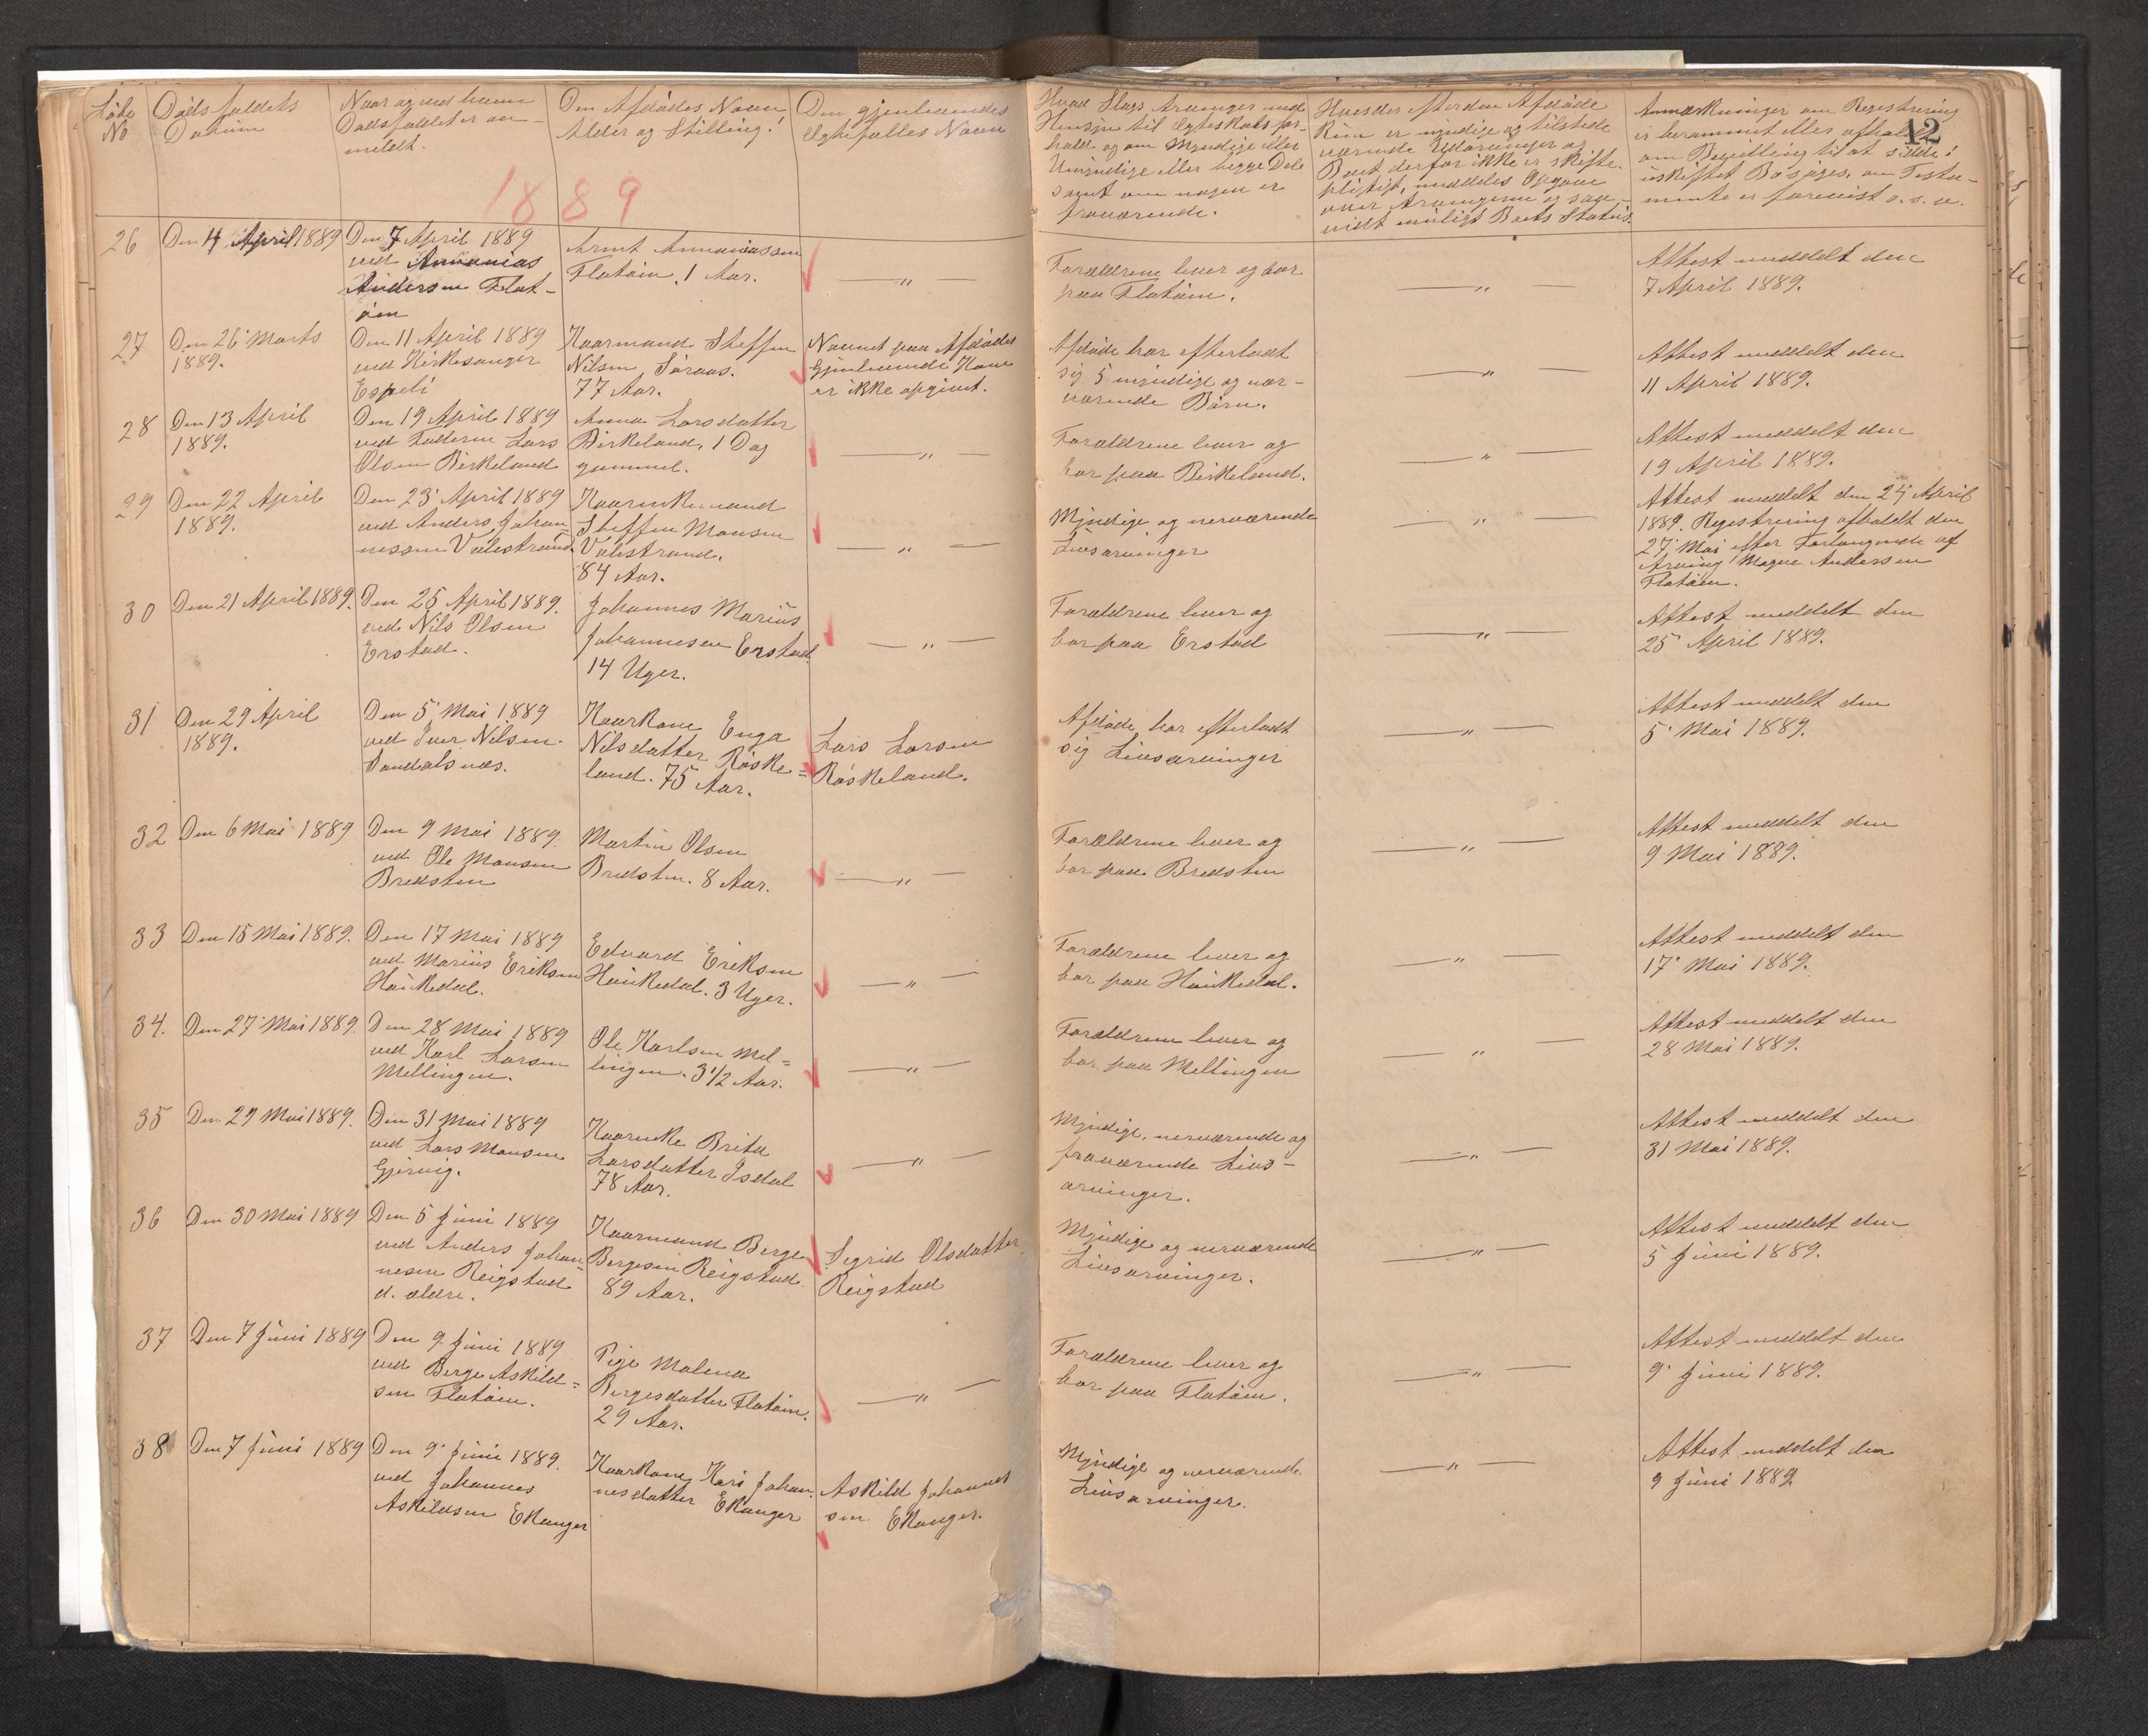 Löbe
No
Dödsfaldets
Datum
Naar og ved hvem
Dödsfaldet er an-
meldt.
Den Afdödes Navn
Alder og Stilling.
Den gjenlevendes
Egtefælles Navn
Hvad Slags Arvinger med
Hensyn til Egteskabs for-
hold og om Myndige eller
Umyndige eller begge Dele
samt om nogen er
fraværende.
Hvis der efter den Afdöde
Kun er myndige og tilstede
værende Udarvinger og
Boet derfor ikke er skifte-
pligtigt, meddeles Opgave
over Arvingerne og saa-
vidt muligt Boets Status.
Anmærkninger om Registrering
er berammet eller afholdt
om Bevilling til at sidde i
uskiftet Bo søges, om Testa-
mente er forevist o.s.v.
12
1889
26
Den 4 April 1889
Den 7 April 1889
ved Annanias
Andersen Flat-
öin
Arnt Annaniassen
Flatöin, 1 Aar.
— „ —
Forældrene lever og bor
paa Flatöin.
— „ —
Attest meddelt den
7 April 1889.
27
Den 26 Marts
1889.
Den 11 April 1889
ved Kirkesanger
Espeli
Kaarmand Steffen
Nilsen Söraas.
77 Aar.
Navnet paa Afdödes
Gjenlevende Kone
er ikke opgivet.
Afdöde har efterladt
sig 5 myndige og nær-
værende Börn.
— „ —
Attest meddelt den
11 April 1889.
28
Den 13 April
1889.
Den 19 April 1889
ved Faderen Lars
Olsen Birkeland
Anna Larsdatter
Birkeland, 1 Dag
gammel.
— „ —
Forældrene lever og
bor paa Birkeland.
— „ —
Attest meddelt den
19 April 1889.
29
Den 22 April
1889.
Den 23 April 1889
ved Anders Johan-
nessen Valestrand
Kaarenkemand
Steffen Monsen
Valestrand.
84 Aar.
— „ —
Myndige og nerværende
Livsarvinger
— „ —
Attest meddelt den 24 April
1889. Registrering afholdt den
27 Mai efter Forlangende af
Arving Magne Andersen
Flatöin.
30
Den 21 April 1889.
Den 25 April 1889.
ved Nils Olsen
Erstad.
Johannes Marius
Johannesen Erstad
14 Uger.
— „ —
Forældrene lever og
bor paa Erstad
— „ —
Attest meddelt den
25 April 1889.
31
Den 29 April
1889.
Den 5 Mai 1889
ved Iver Nilsen
Dandalsnæs.
Kaarkone Enga
Nilsdatter Röske-
land. 75 Aar.
Lars Larsen
Röskeland.
Afdöde har efterladt
sig Livsarvinger
— „ —
Attest meddelt den
5 Mai 1889.
32
Den 6 Mai 1889
Den 9 Mai 1889.
ved Ole Monsen
Bredsten
Martin Olsen
Bredsten. 8 Aar.
— „ —
Forældrene lever og
bor paa Bredsten
— „ —
Attest meddelt den
9 Mai 1889.
33
Den 15 Mai 1889.
Den 17 Mai 1889
ved Marius Eriksen
Haukedal.
Edvard Eriksen
Haukedal. 3 Uger.
— „ —
Forældrene lever og
bor paa Haukedal.
— „ —
Attest meddelt den
17 Mai 1889.
34.
Den 27 Mai 1889.
Den 28 Mai 1889
ved Karl Larsen
Mellingen.
Ole Karlsen Mel-
lingen. 3 1/2 Aar.
— „ —
Forældrene lever og
bor paa Mellingen
— „ —
Attest meddelt den
28 Mai 1889.
35
Den 29 Mai 1889.
Den 31 Mai 1889
ved Lars Monsen
Gjervig.
Kaarenke Brita
Larsdatter Isdal
78 Aar.
— „ —
Myndige, nerværende og
fraværende Livs-
arvinger.
— „ —
Attest meddelt den
31 Mai 1889.
36
Den 30 Mai 1889
Den 5 Juni 1889
ved Anders Johan-
nesen Reigstad
d. ældre.
Kaarmand Berge
Bergesen Reigstad.
89 Aar.
Sigrid Olsdatter
Reigstad
Myndige og nerværende
Livsarvinger.
— „ —
Attest meddelt den
5 Juni 1889.
37
Den 7 Juni 1889
Den 9 Juni 1889
ved Berge Askild-
sen Flatöin.
Pige Malena
Bergesdatter Flatöin.
29 Aar.
— „ —
Forældrene lever og
bor paa Flatöin.
— „ —
Attest meddelt den
9 Juni 1889.
38
Den 7 Juni 1889
Den 9 Juni 1889.
ved Johannes
Askildsen Ekanger
Kaarkone Kari Johan-
nesdatter Ekanger
Askild Johannes
sen Ekanger.
Myndige og nerværende
Livsarvinger.
— „ —
Attest meddelt den
9 Juni 1889